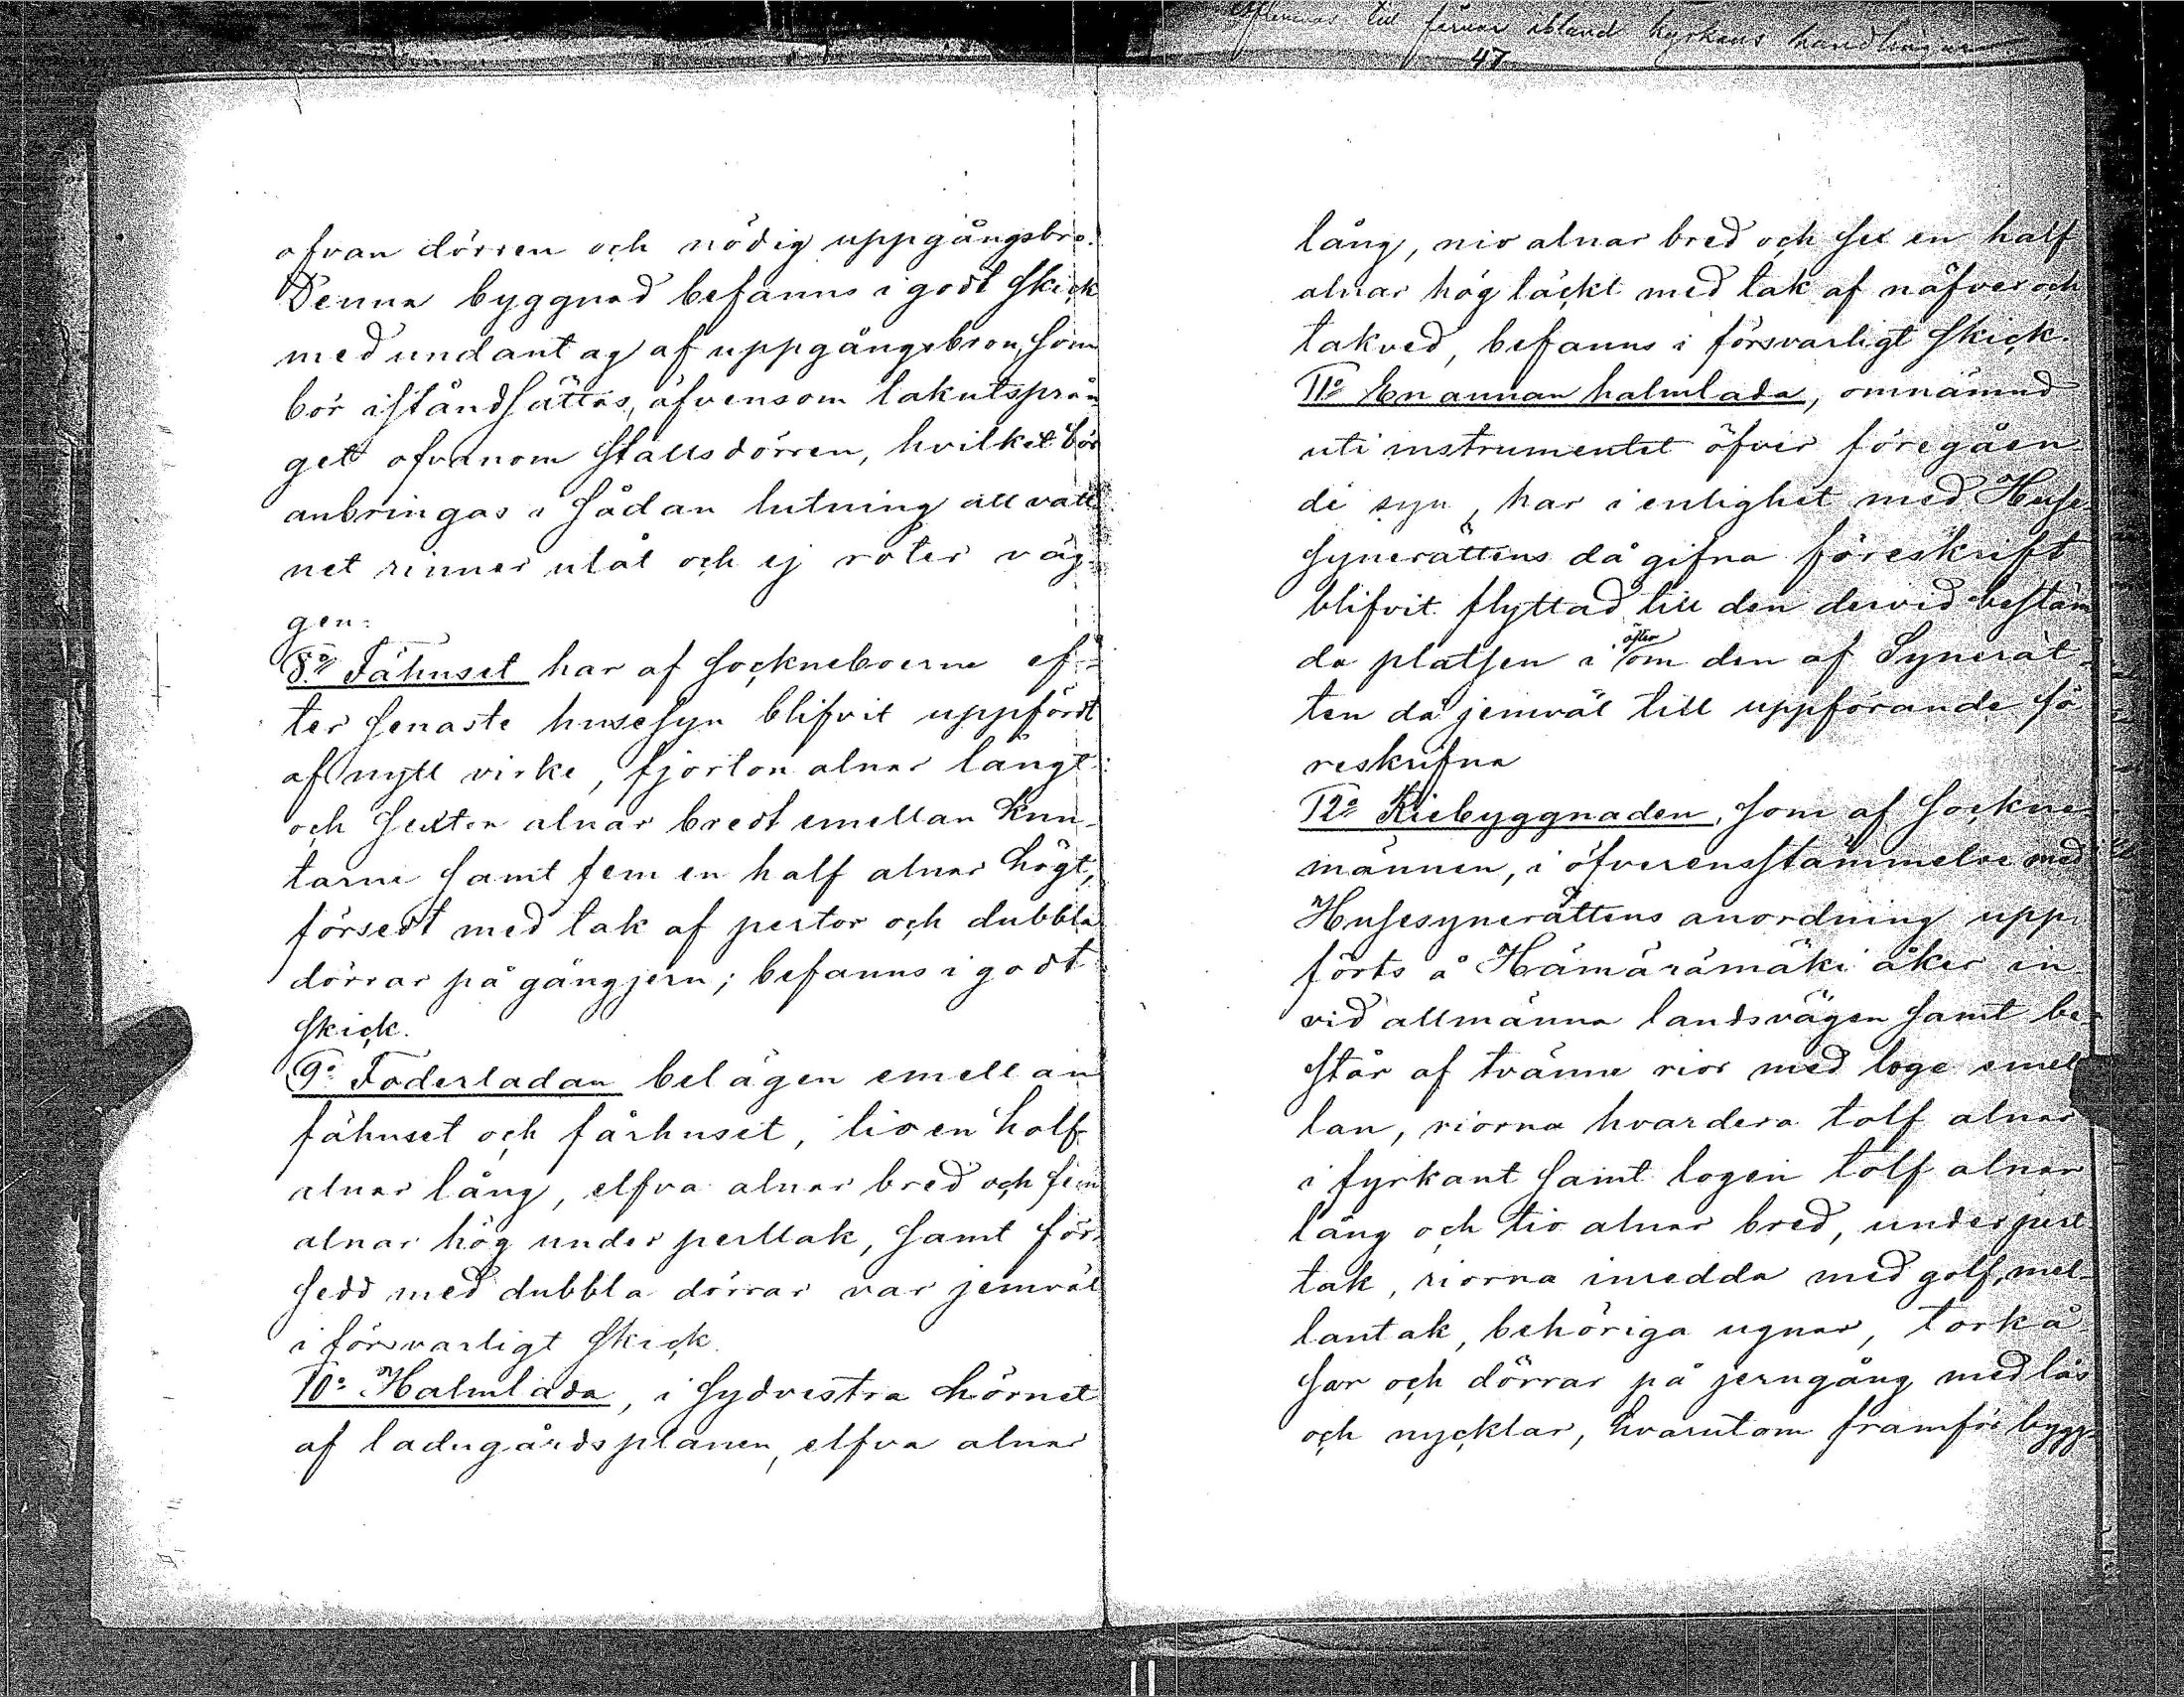 ofvan dörren och nödig uppgångsbro.
Denna byggnad befanns i godt skick
med undantag af uppgångsbron, som
bör iståndsättas, äfvensom takutsprån-
get ofvanom stallsdörren, hvilket bör
anbringas i sådan lutning att vatt-
net rinner utåt och ej röter väg-
gen.
8:o Fähuset har af sockneboerne ef-
ter senaste husesyn blifvit uppfördt
af nytt virke, fjorton alnar långt
och sexton alnar bredt emellan knu-
tarne samt fem en half alnar högt,
försedt med tak af pertor och dubbla
dörrar på gångjern; befanns i godt
skick.
9:o Foderladan belägen emellan
fähuset och fårhuset, tio en half
alnar lång, elfva alnar bred och fem
alnar hög under perttak, samt för-
sedd med dubbla dörrar var jemväl
i försvarligt skick.
10:o Halmlada, i sydvestra hörnet
af ladugårdsplanen, elfva alnar
till fernar ibland kyrkans handlingar
47
lång, nio alnar bred och sex en half
alnar hög täckt med tak af näfver och
takved, befanns i försvarligt skick.
11:o En annan halmlada, omnämnd
uti instrumentet öfver föregåen-
de syn, har i enlighet med Huse-
synerättens då gifna föreskrift
blifvit flyttad till den dervid bestäm
da platsen i öster om den af Synerät-
ten då jemväl till uppförande fö-
reskrifna
12:o Riebyggnaden, som af sockne-
männen, i öfverensstämmelse med
Husesynerättens anordning upp-
förts å Hämärämäki åker in-
vid allmänna landsvägen samt be-
står af tvänne rior med loge emel-
lan, riorna hvardera tolf alnar
i fyrkant samt logen tolf alnar
lång och tio alnar bred, under pert-
tak, riorna inredda med golf, mel-
lantak, behöriga ugnar, torkå-
sar och dörrar på jerngång med lås
och nycklar, hvarutom framför bygg-